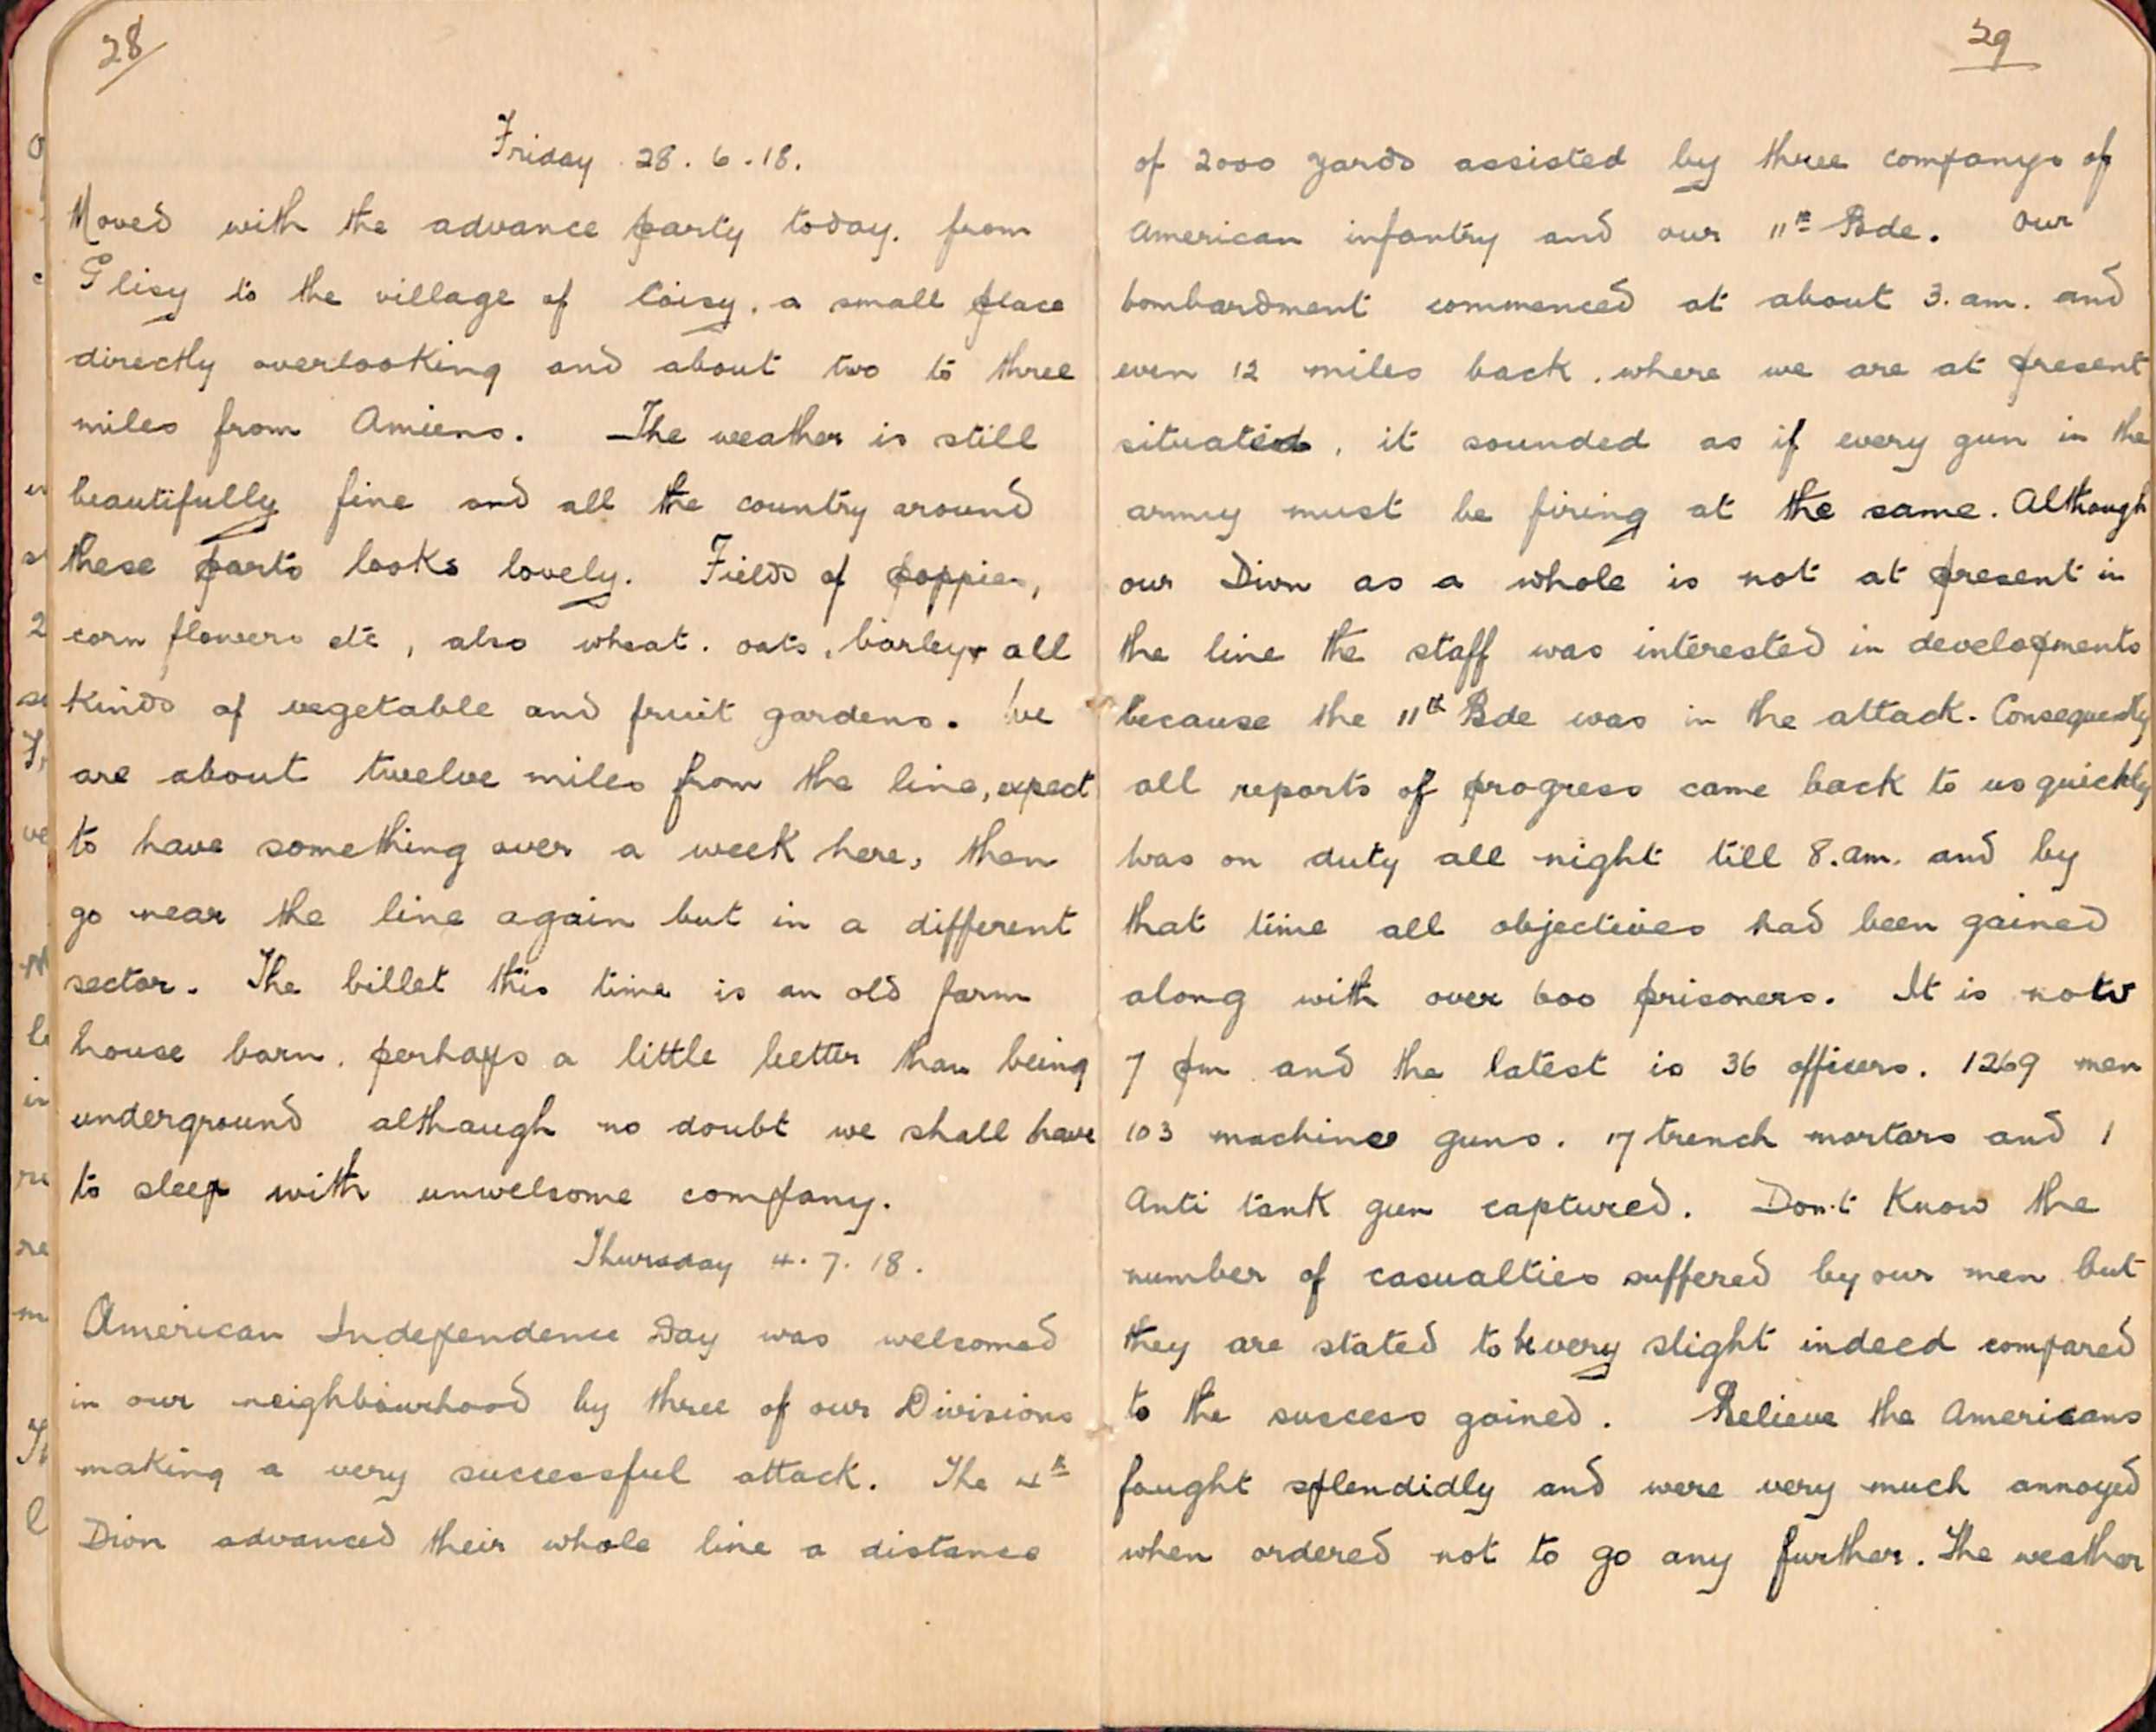 28
Friday 28.6.18.
Moved with the advance party today. from
Glisy to the village of Coisy, a small place
directly overlooking and about two to three
miles from Amiens. The weather is still
beautifully fine and all the country around
these parts looks lovely. Fields of poppies,
corn flowers etc, also wheat. oats, barley & all
kinds of vegetable and fruit gardens. We
are about twelve miles from the line, expect
to have something over a week here, then
go near the line again but in a different
sector. The billet this time is an old farm
house barn. perhaps a little better than being
underground although no doubt we shall have
to sleep with unwelcome company.
Thursday 4.7.18.
American Independence Day was welcomed
in our neighbourhood by three of our Divisions
making a very successful attack. The 4th
Divn advanced their whole line a distance
29
of 2000 yards assisted by three companys of
American infantry and our 11th Bde. Our
bombardment commenced at about 3.am. and
even 12 miles back. where we are at present
situated, it sounded as if every gun in the
army must be firing at the same. Although
our Divn as a whole is not at present in
the line the staff was interested in developments
because the 11th Bde was in the attack. Consequently
all reports of progress came back to us quickly
Was on duty all night till 8.am. and by
that time all objectives had been gained
along with over 600 prisoners. It is now
7 pm and the latest is 36 officers. 1269 men
103 machine guns. 17 trench mortars and 1
Anti tank gun captured. Don't know the
number of casualties suffered by our men but
they are stated to be very slight indeed compared
to the success gained. Believe the Americans
fought splendidly and were very much annoyed
when ordered not to go any further. The weather